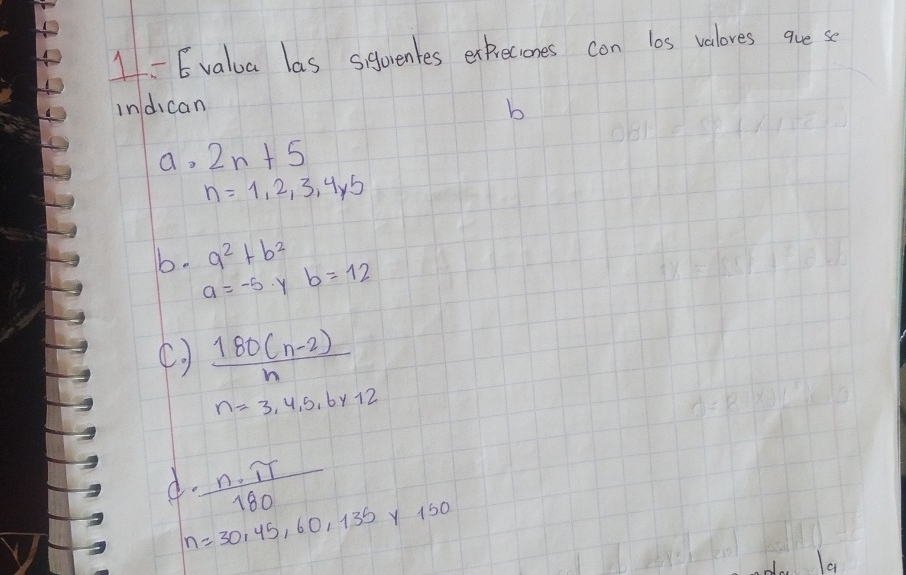 1.- Evalua las siguientes expreciones con los valores que se
indican
b
a. 2n + 5
n = 1, 2, 3, 4 y 5
b. a² + b²
a = -5 y b = 12
c.) 180(n-2)
n
n = 3, 4, 5, 6 y 12
d. n . π
180
n = 30, 45, 60, 135 y 150
la